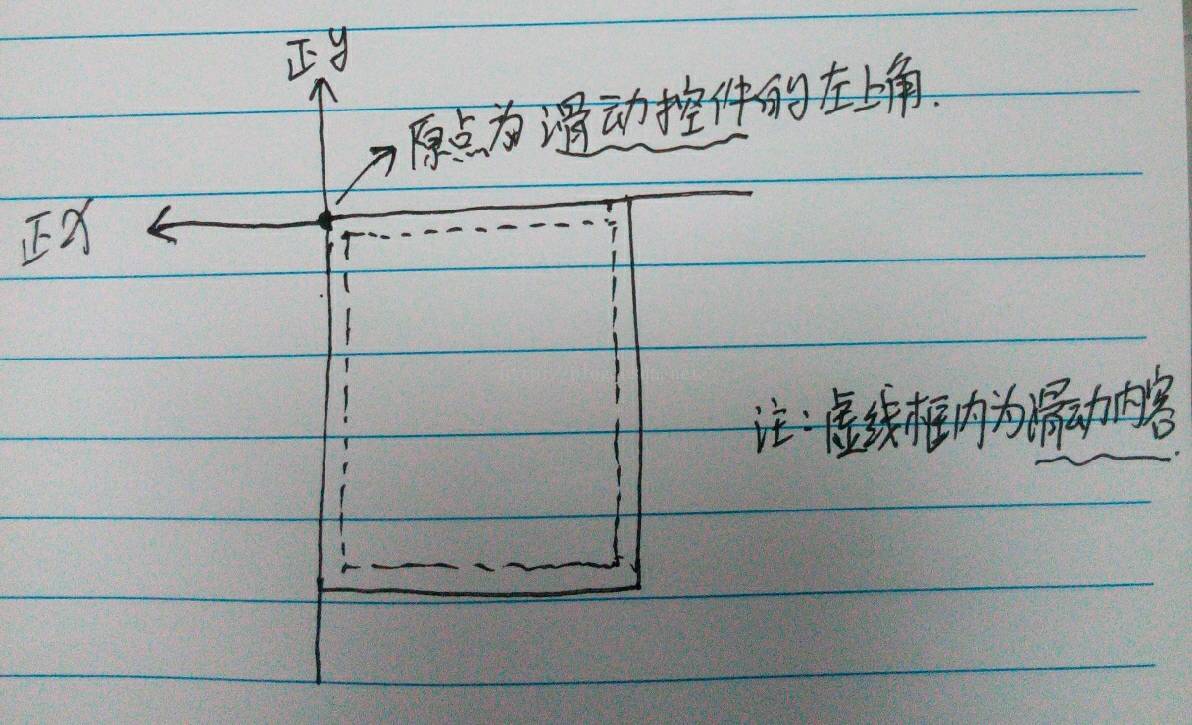 正y
原点为滑动控件的左上角.
正X
注:虚线框内为滑动内容.